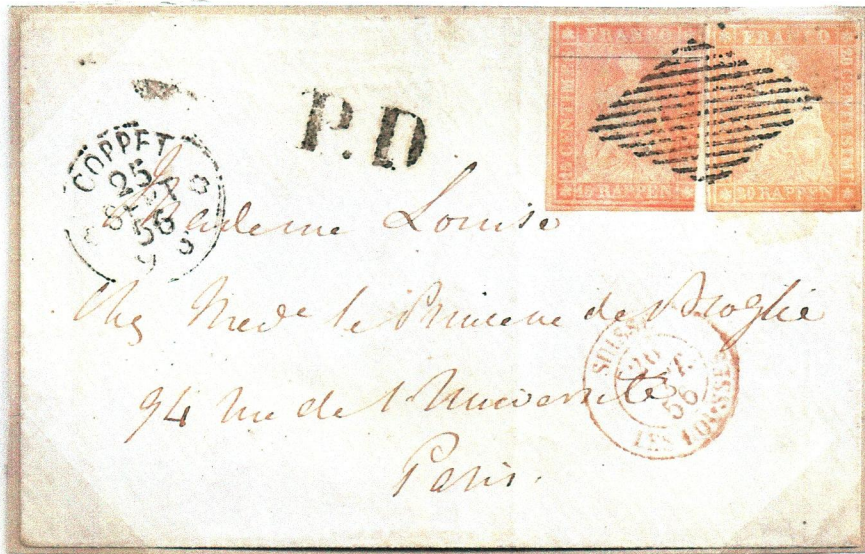 FRANCO FRANCO
15 CENTIMES 20 CENTESIMI
15 RAPPEN 20 RAPPEN
P.D
COPPET
25
SEPT
56
Madame Louise
Chez Made la Princesse de Broglie
94 rue de l'Université
Paris.
SUISSE
26
SEPT.
56
LES ROUSSES